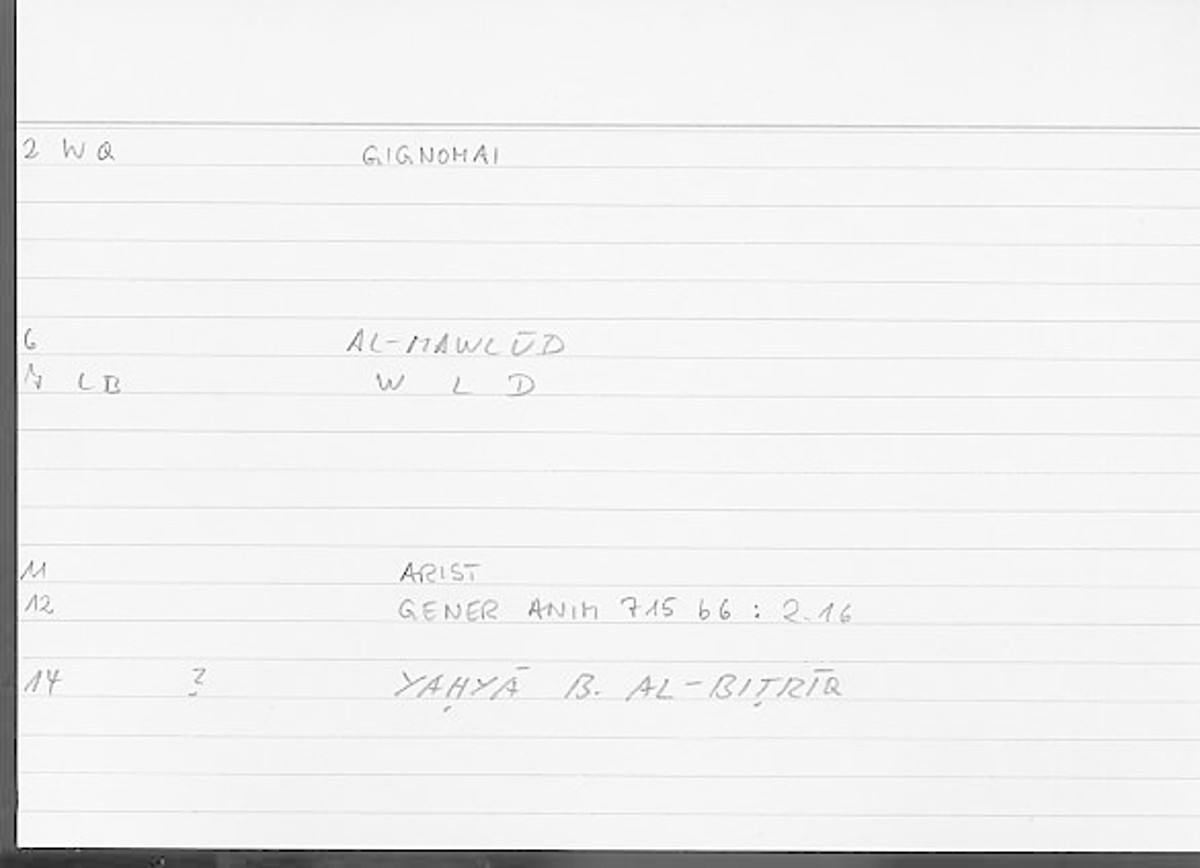 2 WQ GIGNOMAI
6 AL-MAWLŪD
7 LB W L D
11 ARIST
12 GENER ANIM 715 b6 : 2.16
14 ? YAḤYĀ B. AL-BIṬRĪQ